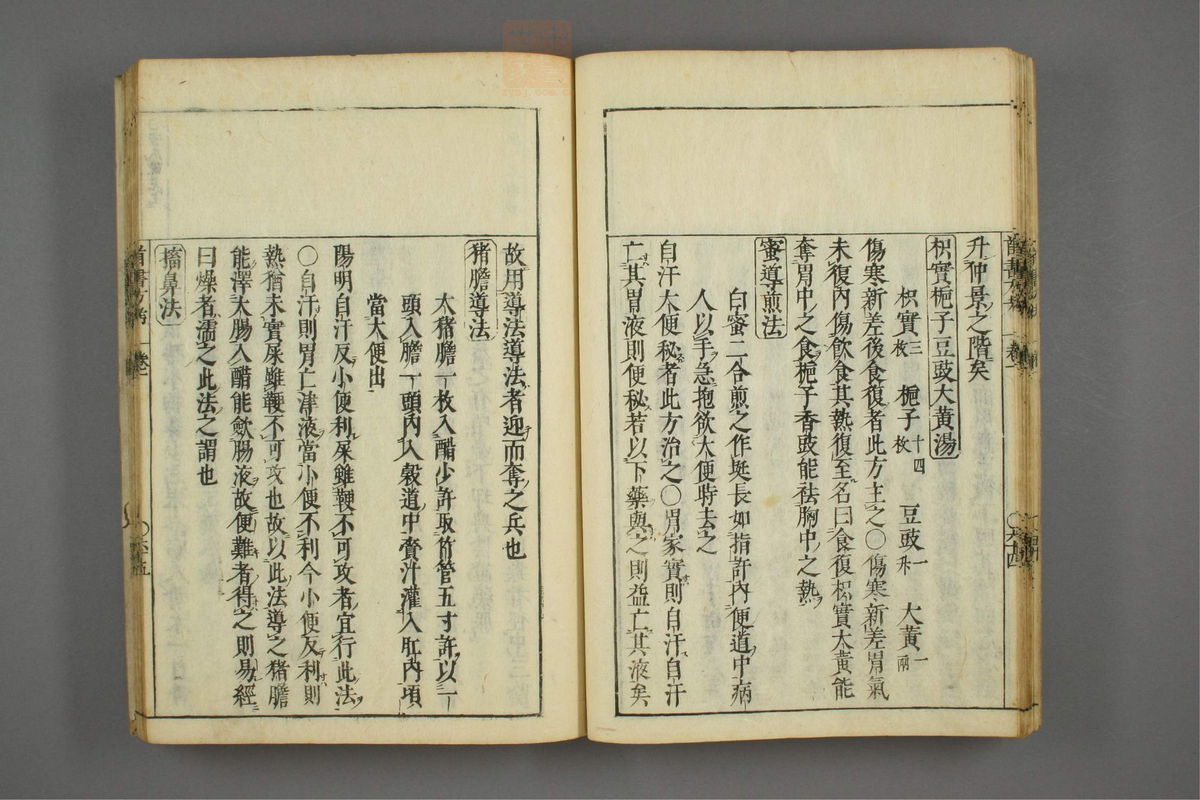 升仲景之階矣
枳實梔子豆豉大黃湯
枳實三枚 梔子十四枚 豆豉一升 大黃一兩
傷寒新差後食復者此方主之〇傷寒新差胃氣
未復內傷飲食其熱復至名曰食復枳實大黃能
奪胃中之食梔子香豉能祛胸中之熱
蜜導煎法
白蜜二合煎之作挺長如指許內便道中病
人以手急抱欲大便時去之
自汗大便秘者此方治之〇胃家實則自汗自汗
亡其胃液則便秘若以下藥與之則益亡其液矣
故用導法導法者迎而奪之兵也
猪膽導法
大猪膽一枚入醋少許取竹管五寸許以一
頭入膽一頭內入穀道中賷汁灌入肛內頃
當大便出
陽明自汗反小便利屎雖鞕不可攻者宜行此法
〇自汗則胃亡津液當小便不利今小便反利則
熱猶未實屎雖鞕不可攻也故以此法導之猪膽
能澤大腸入醋能歛腸液故便難者得之則易經
曰燥者濡之此法之謂也
搐鼻法
卷一
〇六十五